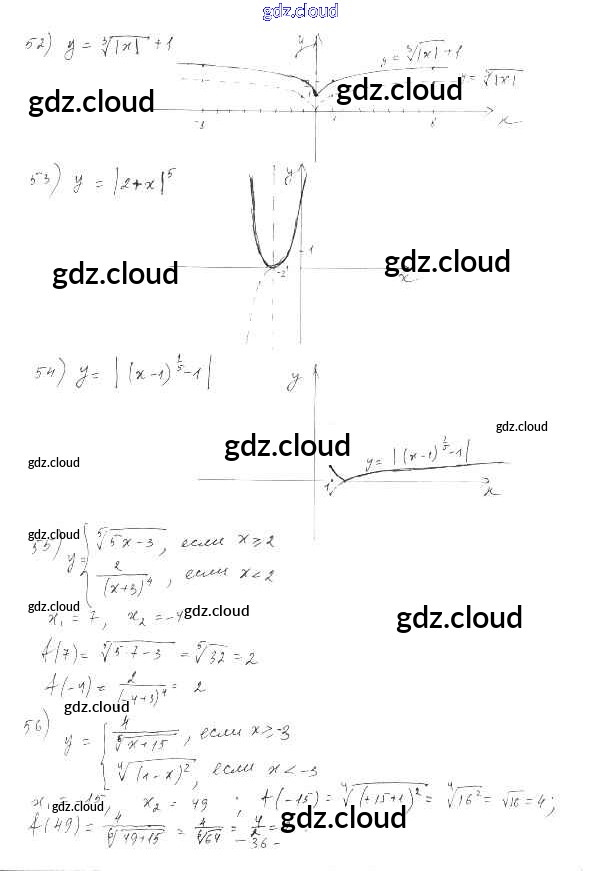 gdz.cloud
52) y = ∛|x| + 1
y
y = ∛|x| + 1
y = ∛|x|
gdz.cloud gdz.cloud
-8 1 8 x
53) y = |2+x|⁵
y
1
gdz.cloud gdz.cloud
-2 x
54) y = |(x-1)^(1/5) - 1|
y
gdz.cloud
gdz.cloud
gdz.cloud
y = |(x-1)^(1/5) - 1|
1 x
gdz.cloud
55) y = { ⁵√(5x-3), если x ≥ 2
2/(x+3)⁴, если x < 2
gdz.cloud gdz.cloud gdz.cloud
x₁ = 7, x₂ = -4
f(7) = ⁵√(5·7-3) = ⁵√32 = 2
f(-4) = 2/(-4+3)⁴ = 2
gdz.cloud
56) y = { 4/⁶√(x+15), если x ≥ -3
⁴√((1-x)²), если x < -3
x₁ = -15, x₂ = 49; f(-15) = ⁴√((+15+1)²) = ⁴√16² = √16 = 4;
gdz.cloud
f(49) = 4/⁶√(49+15) = 4/⁶√64 = 4/2 =
- 36 -